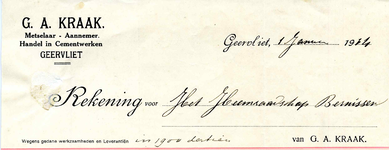 G. A. KRAAK.
Metselaar - Aannemer.
Handel in Cementwerken
GEERVLIET
Geervliet, 1 Januari 1914
Rekening voor Het Heemraadschap Bernisse
Wegens gedane werkzaamheden en Leverantiën in 1900 dertien van G. A. KRAAK.